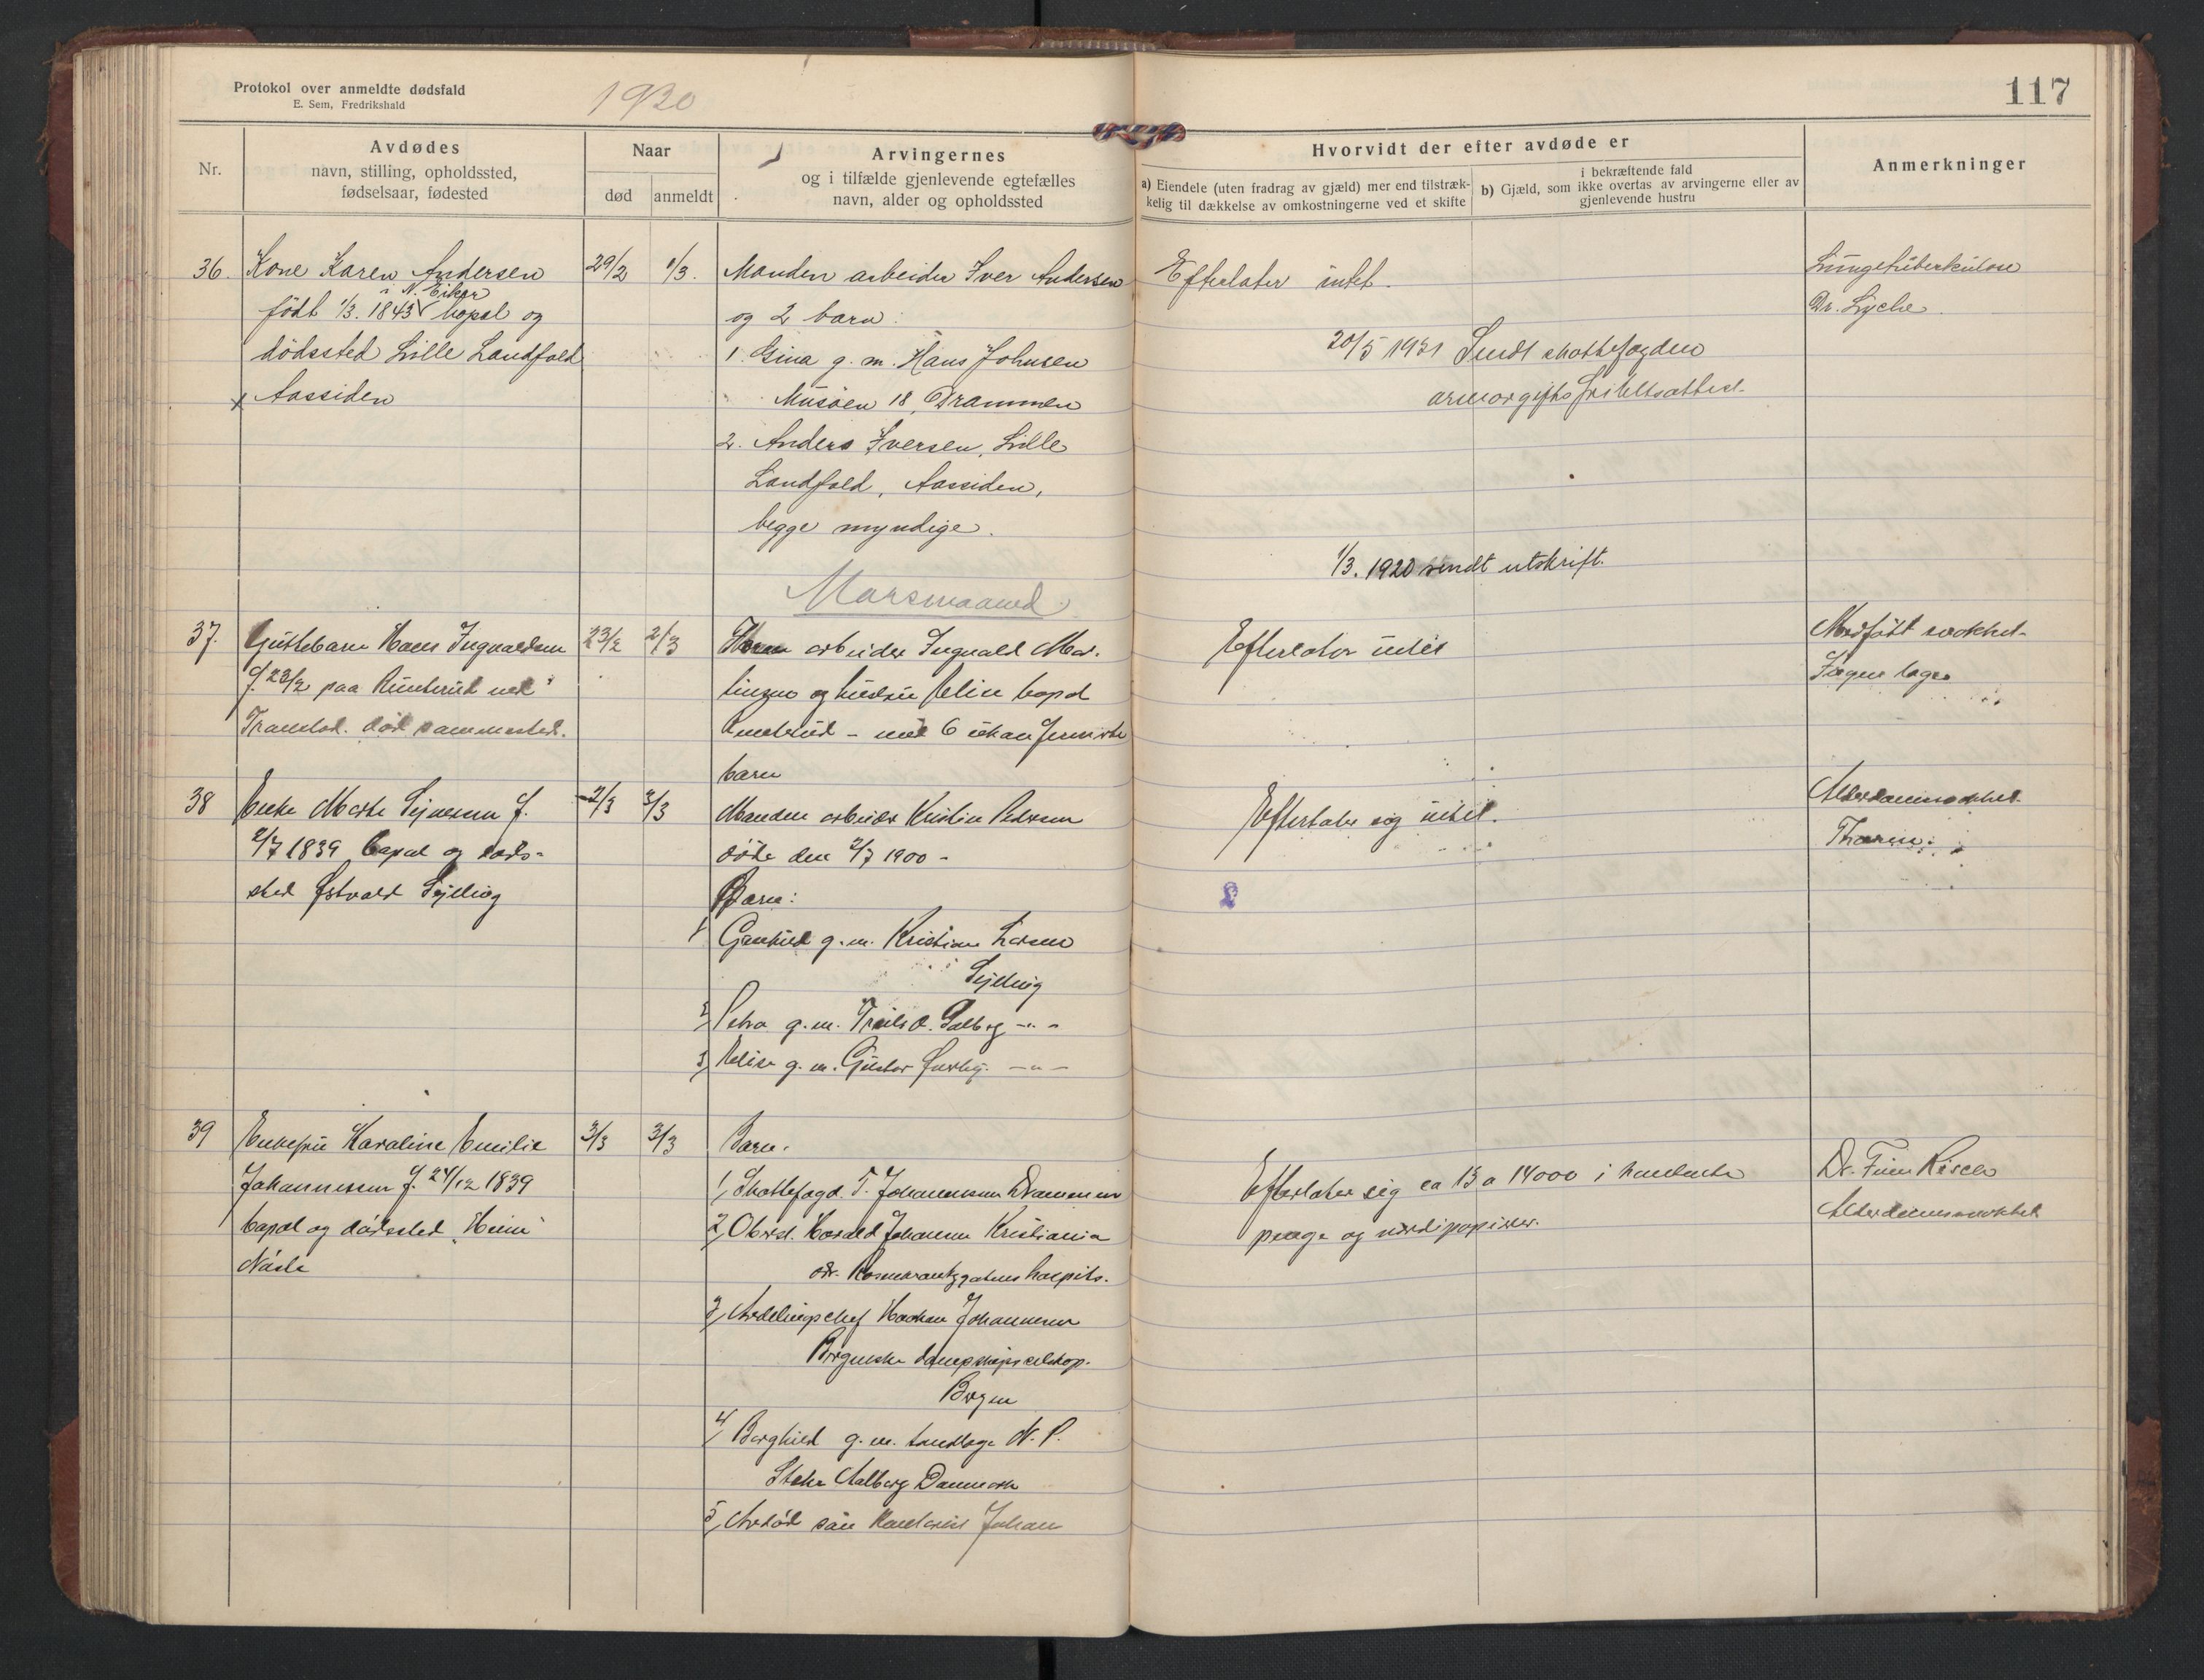 Protokol over anmeldte dødsfald
E. Sem, Fredrikshald
1920
117
Nr.
Avdødes
navn, stilling, opholdssted,
fødselsaar, fødested
Naar
død
anmeldt
Arvingernes
og i tilfælde gjenlevende egtefælles
navn, alder og opholdssted
Hvorvidt der efter avdøde er
a) Eiendele (uten fradrag av gjæld) mer end tilstræk-
kelig til dækkelse av omkostningerne ved et skifte
i bekræftende fald
b) Gjæld, som ikke overtas av arvingerne eller av
gjenlevende hustru
Anmerkninger
36.
Kone Karen Andersen
i N. Eiker
født 1/3. 1843 bopæl og
dødssted Lille Landfald
x Aassiden
29/2
1/3.
Manden arbeider Iver Andersen
og 2 barn:
1. Gina g. m. Hans Johnsen
Musøen 18, Drammen
2. Anders Iversen, Lille
Landfald, Aassiden,
begge myndige.
Efterlater intet.
20/5 1931 Sendt skattefogden
arveavgifts frihetsattest.
1/3. 1920 sendt utskrift.
Lungetuberkulose
Dr. Lyche.
Marsmaaned
37.
Guttebarn Hans Ingvaldsen
f. 23/2 paa
død sammested.
23/2
2/3
arbeider Ingvald Mar-
tinsen og hustru Elise bopæl
- med 6
barn
Efterlater intet
Medfødt svakhet
38
Enke Marte Syversen f.
2/7 1839 bopæl og døds-
sted Østvold Sylling
2/3
3/3
Manden arbeider Kristian Pedersen
døde den 2/7 1900 -
Barn:
1 Gunhild g. m. Kristian Larsen
Sylling
2, Petra g. m. Truls O. Solberg -"-
3, Elise g. m. Gustav -"-
Efterlater sig intet.
Alderdomssvakhet.
39
Enkefru Karoline Emilie
Johannessen f. 24/12 1839
bopæl og dødssted "Heim"
3/3
3/3
Barn.
1, Skattefogd T. Johannessen Drammen
2, Oberst. Harald Johannsen Kristiania
adr. Rosenkrantzgatens hospits.
3, Avdelingschef Haakon Johannesen
Bergenske dampskipsselskap.
Bergen
4, Borghild g. m. tandlæge N. P.
Aalborg Danmark
5, Avdød søn Johan
Efterlater sig ca 13 a 14000 i kontante
penge og værdipapirer.
Dr. Finn
Alderdomssvakhet